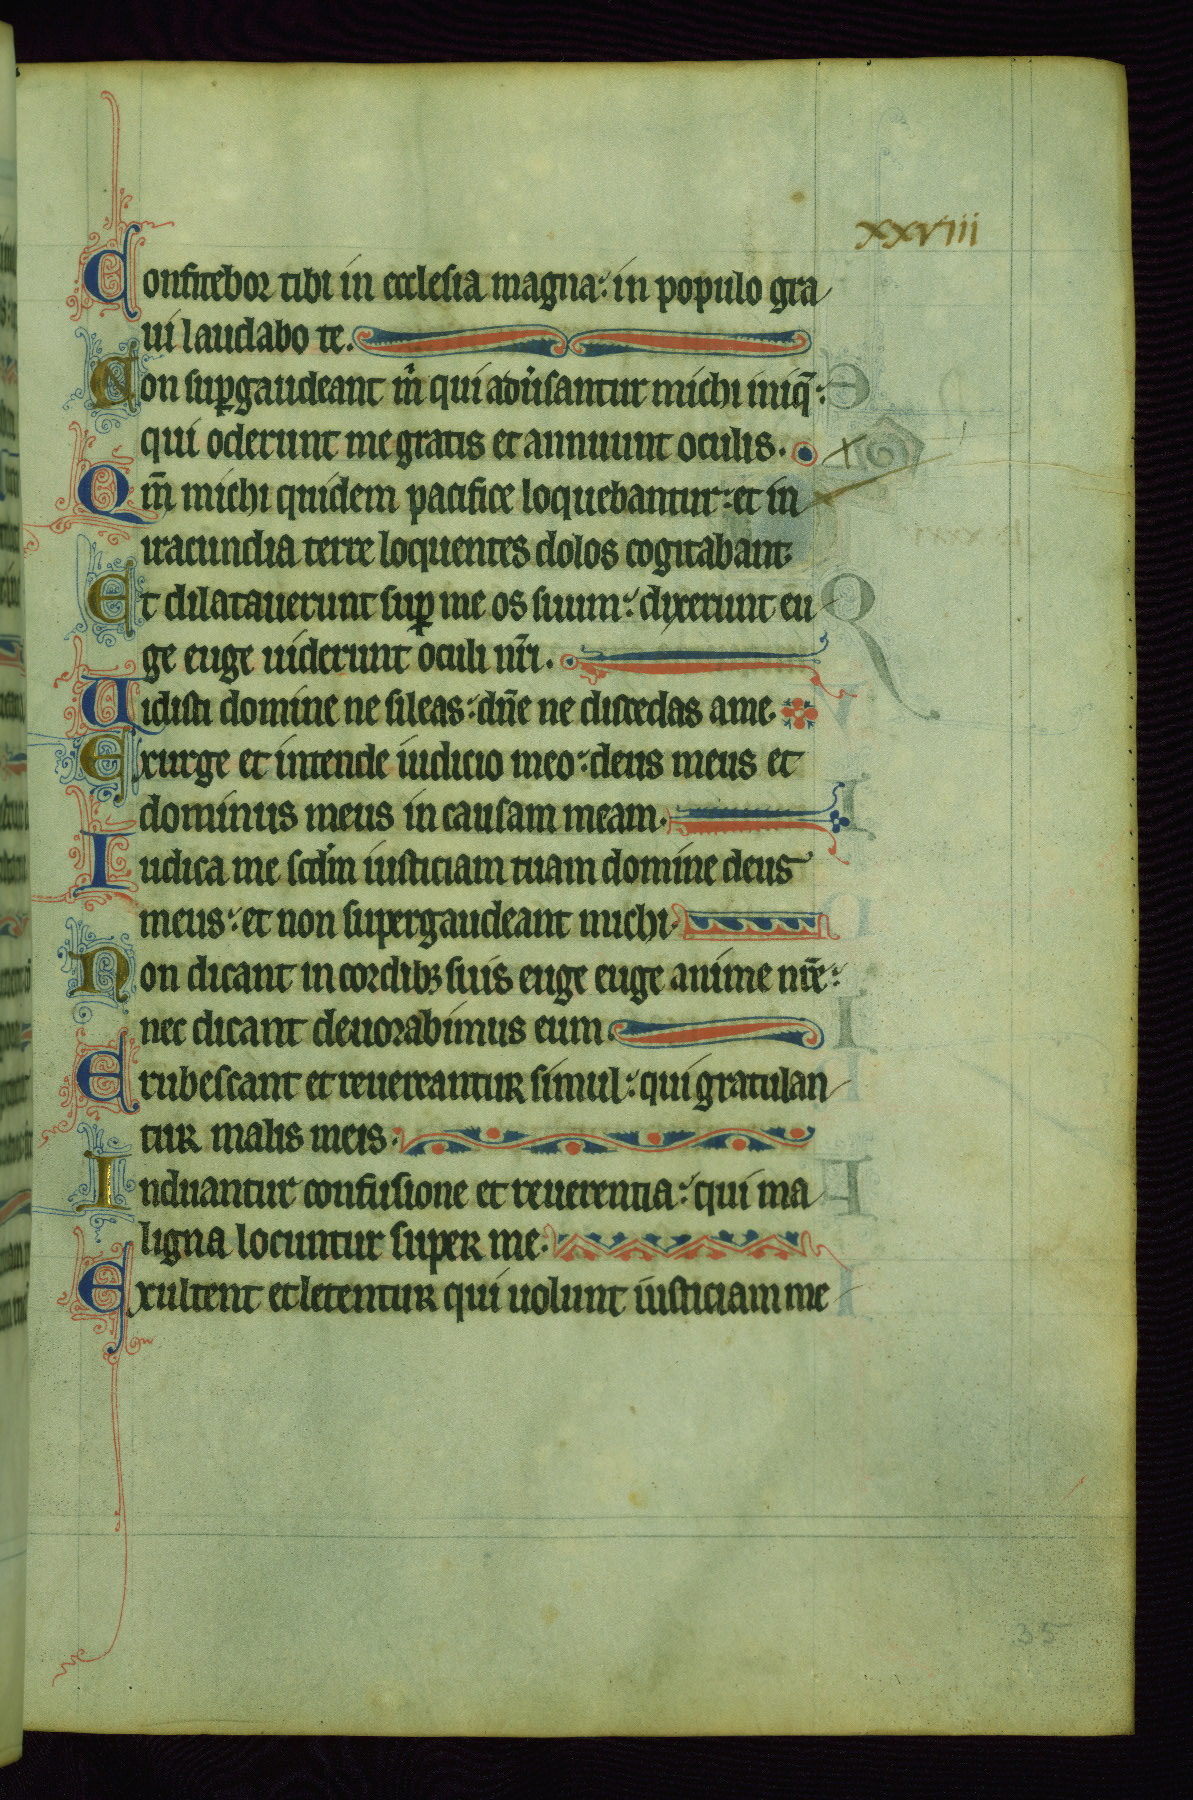 xxviii
Confitebor tibi in ecclesia magna: in populo gra
ui laudabo te.
Non sup̱gaudeant m̄ qui adu̓santur michi iniq̄:
qui oderunt me gratis et annuunt oculis.
Qm̄ michi quidem pacifice loquebantur: et in
iracundia terre loquentes dolos cogitabant.
Et dilatauerunt sup̱ me os suum: dixerunt eu
ge euge uiderunt oculi nr̄i.
Uidisti domine ne sileas: dn̄e ne discedas a me.
Exurge et intende iudicio meo: deus meus et
dominus meus in causam meam.
Iudica me scd̓m iusticiam tuam domine deus
meus: et non supergaudeant michi.
Non dicant in cordibꝫ suis euge euge anime nr̄e:
nec dicant deuorabimus eum.
Erubescant et reuereantur simul: qui gratulan
tur malis meis.
Induantur confusione et reuerentia: qui ma
ligna locuntur super me.
Exultent et letentur qui uolunt iusticiam me
35